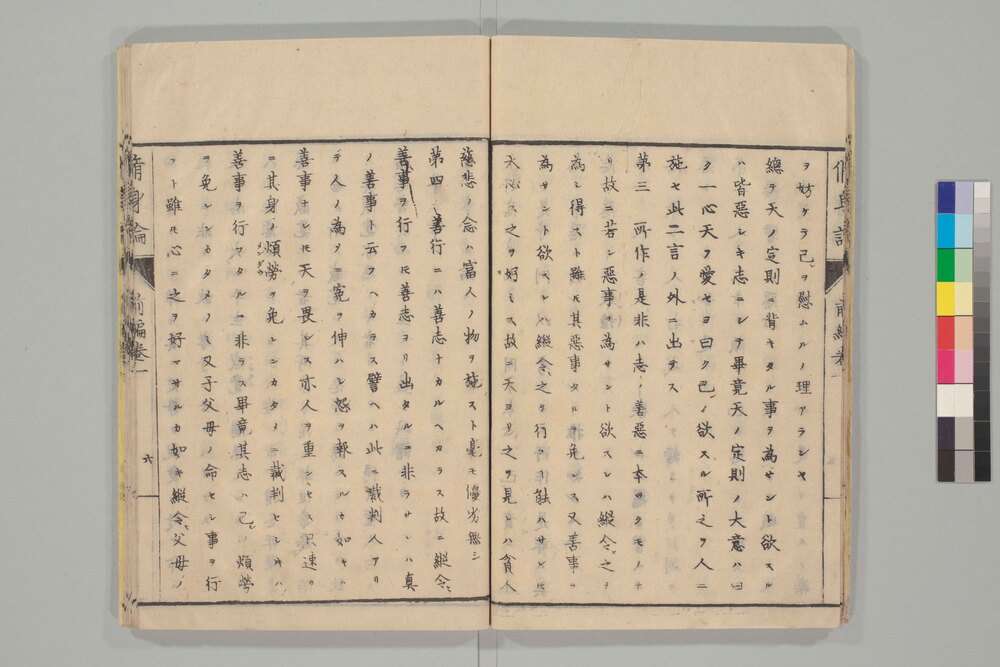 ヲ妨ケラ己ヲ慰ムルノ理アランヤ
總テ天ノ定則ニ背キタル事ヲ為サント欲スル
ハ皆惡シキ志ニシテ畢竟天ノ定則ノ大意ハ曰
ク一心天ヲ愛セヨ曰ク己ノ欲スル所之ヲ人ニ
施セ此二言ノ外ニ出テス
第三 所作ノ是非ハ志ノ善惡ニ本ツクモノナ
リ故ニ若シ惡事ヲ為サント欲スレハ縱令之ヲ
為シ得スト雖𪜈其惡事タルヲ免レス又善事ヲ
為サント欲スレハ縱令之ヲ行フ能ハサルモ
天必ス之ヲ好ミス故ニ天ヨリ之ヲ見レハ貧人
慈悲ノ念ハ富人ノ物ヲ施スト毫モ優劣無シ
第四 善行ニハ善志ナカルヘカラス故ニ縱令
善事ヲ行フ𪜈善志ヨリ出タルニ非ラサレハ真
ノ善事ト云フヘカラス譬ヘハ此ニ裁判人アリ
テ人ノ為メニ寃ヲ伸ハシ怨ヲ報スルカ如キハ
善事ナレ𪜈天ヲ畏レス亦人ヲ重ンセス只速カ
ニ其身ノ煩勞ヲ免レンカタメニ裁判セシキハ
善事ヲ行フタルニ非ラス畢竟其志ハ己ノ煩勞
ヲ免レンカタメノミ又子父母ノ命セシ事ヲ行
フト雖モ心ニ之ヲ好マサルカ如キ縱令父母ノ
脩身論 前編卷一
六